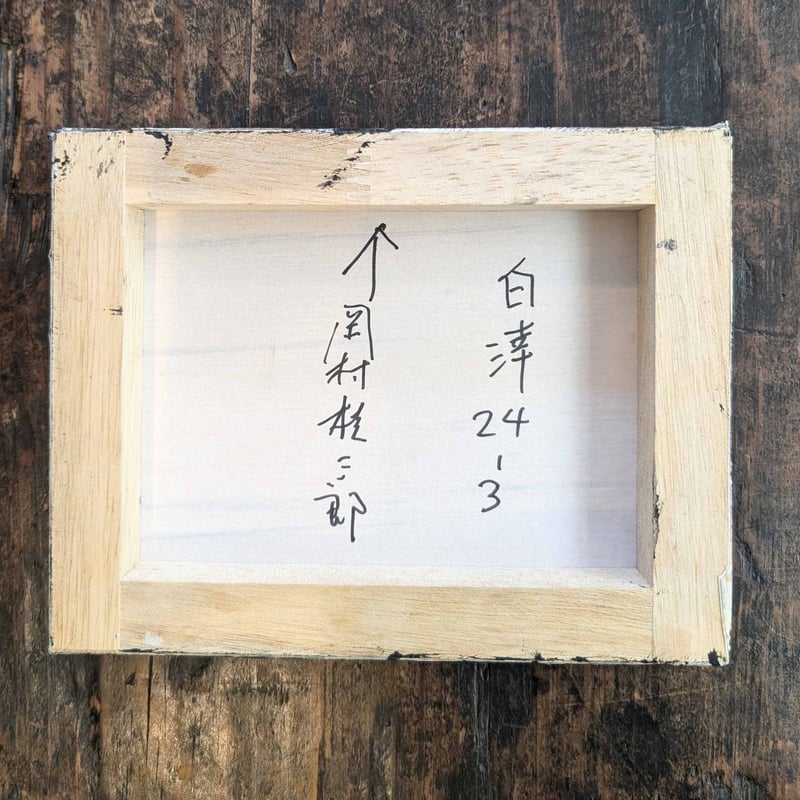 白澤24-3
↑岡村桂三郎